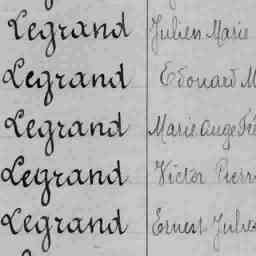 Legrand Julien Marie
Legrand Edouard M
Legrand Marie Ange Fré
Legrand Victor Pierr
Legrand Ernest Jules